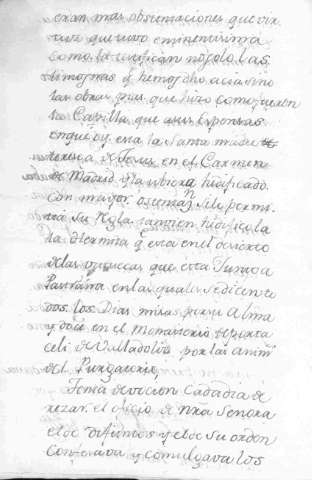 eran mas obseruaciones que vir
tud que tuvo eminentissima
como la testifican no solo las
limosnas q hemos dho acia sino
las obras pias que hizo como fueron
la Capilla que a sus expensas
en que oy esta la santa madre
teresa de Jesus en el Carmen
de Madrid, y la ubiera edificado
con mayor ostentaon si lo permi
tiera su Regla tambien edifico la
la Hermita q esta en el desierto
de las que esta Junto a
Pastrana en las quales se dicen to
dos los Dias misas por su alma
y doce en el monasterio de porta
celi de Valladolid por las anim
del Purgatorio,
Tenia devocion cada dia de
rezar el oficio de nra Senora
el de difuntos y el de su orden
Confesava y comulgava los